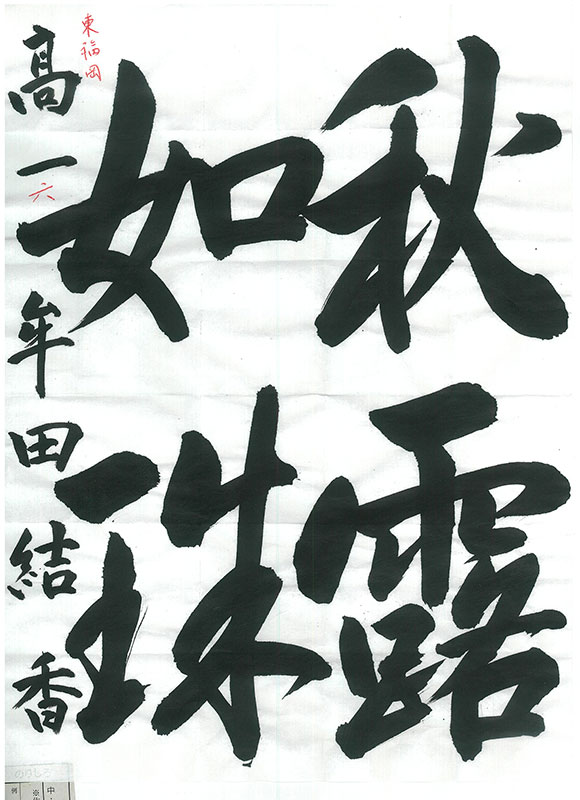 秋露
如珠
東福岡
高一六牟田結香